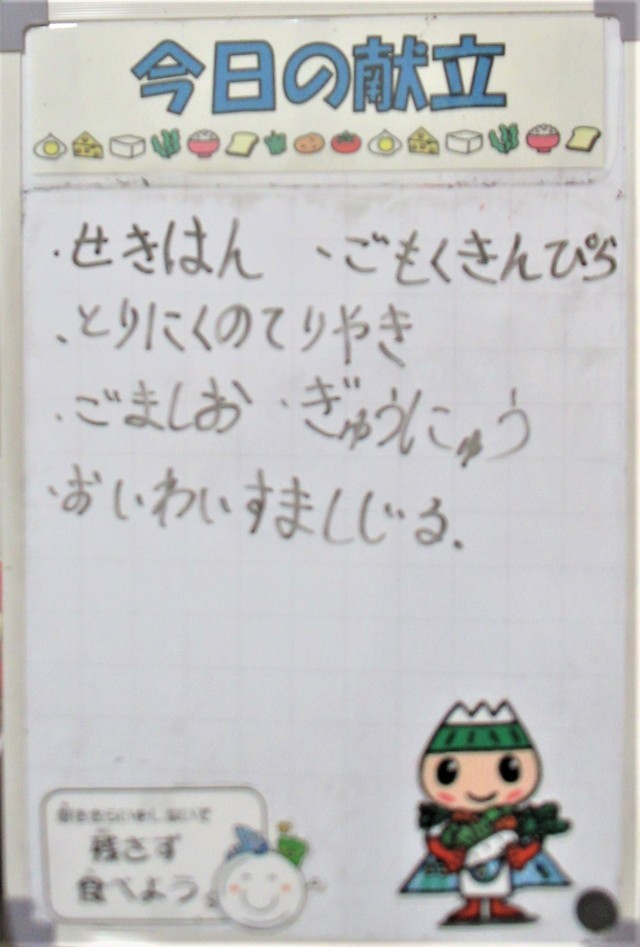 今日の献立
・せきはん ・ごもくきんぴら
・とりにくのてりやき
・ごましお ・ぎゅうにゅう
・おいわいすましじる.
残さず
食べよう。